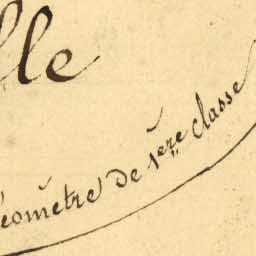 lle
Géomètre de 1ere classe